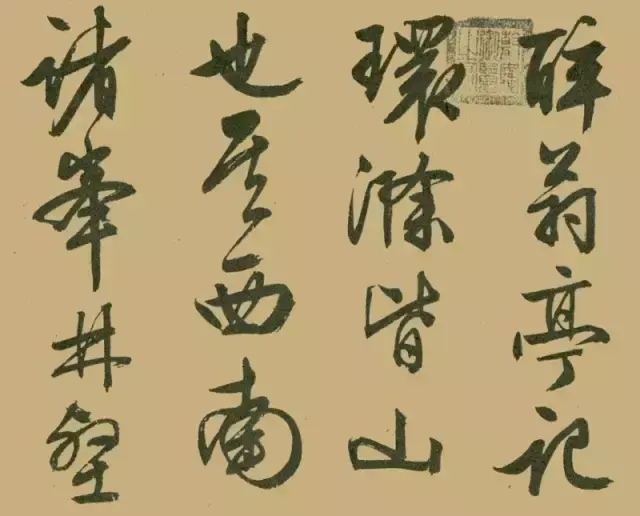 醉翁亭記
環滁皆山
也其西南
諸峯林壑